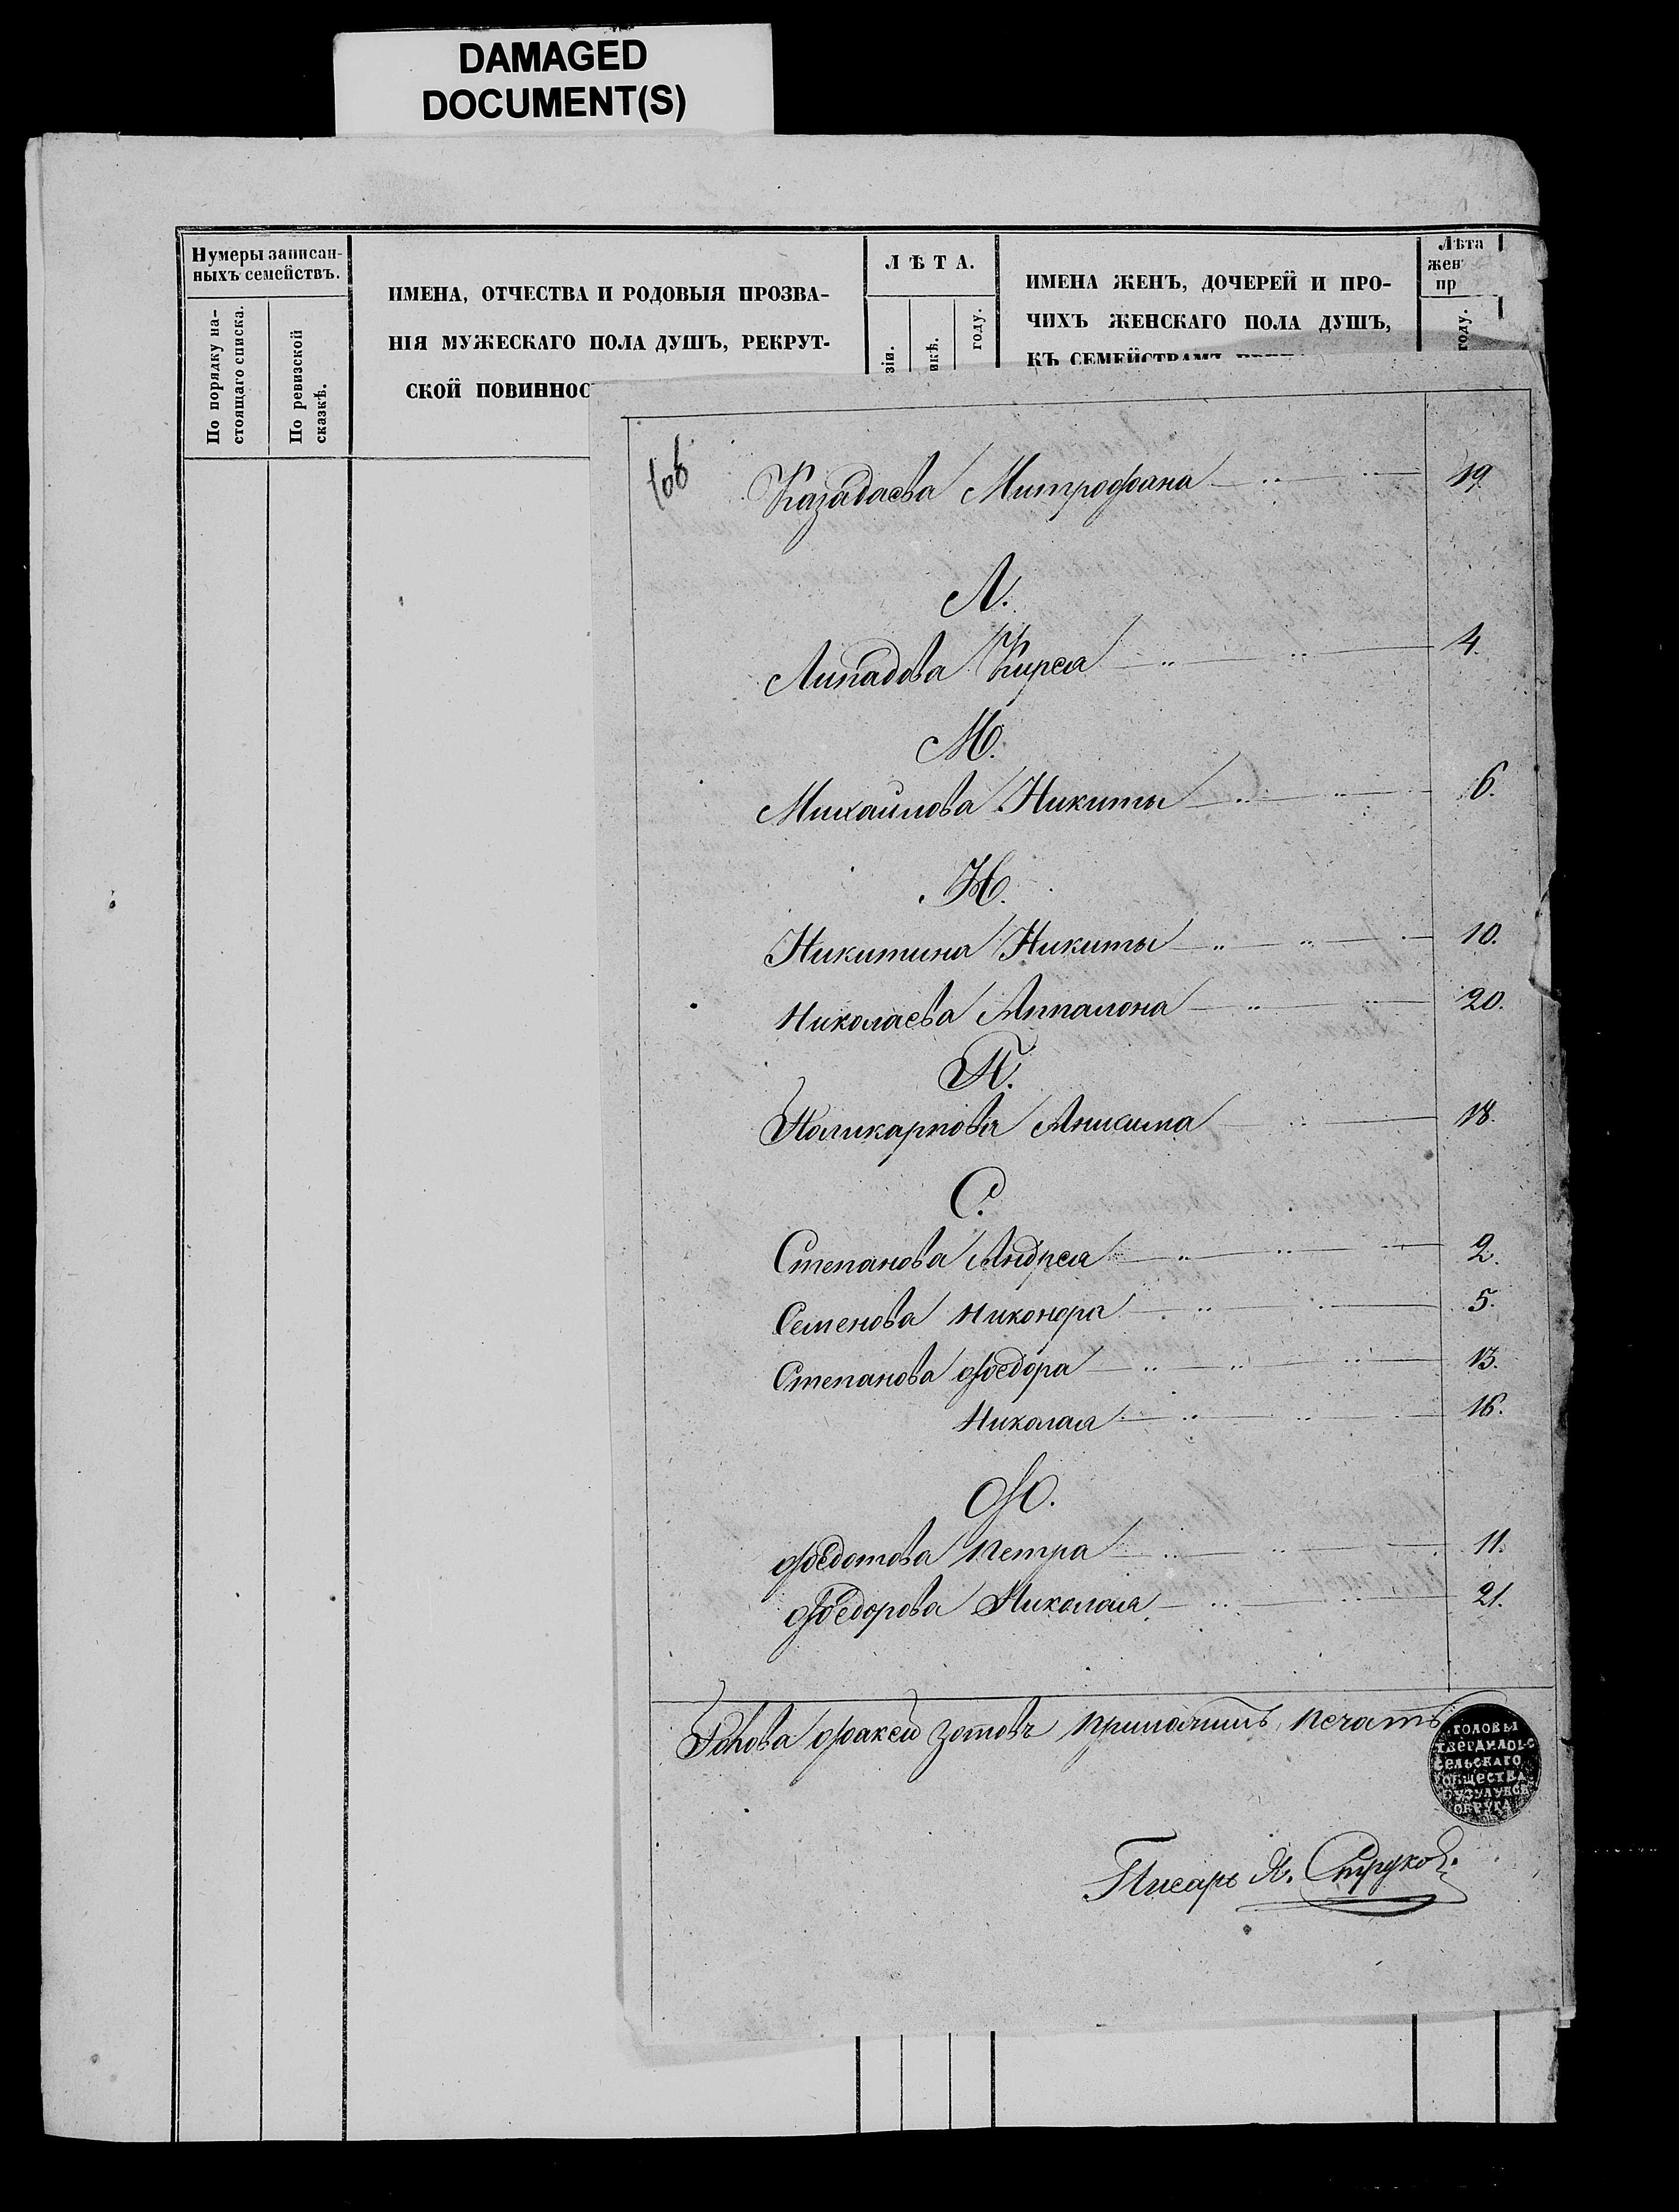 DAMAGED
DOCUMENT(S)
Нумеры записан-
ныхъ семействъ.
По порядку на-
стоящаго списка.
По ревизской
сказкѣ.
ИМЕНА, ОТЧЕСТВА И РОДОВЫЯ ПРОЗВА-
НІЯ МУЖЕСКАГО ПОЛА ДУШЪ, РЕКРУТ-
СКОЙ ПОВИННОС
ЛѢТА.
зіи.
икѣ.
году.
ИМЕНА ЖЕНЪ, ДОЧЕРЕЙ И ПРО-
ЧИХЪ ЖЕНСКАГО ПОЛА ДУШЪ,
КЪ СЕМЕЙСТВАМЪ
Лѣта
жен
пр
году.
Казадаева Митрофана 19
Л.
Липадова Кирея 4.
М.
Михайлова Никиты 6.
Н.
Никитина Никиты 10.
Николаева Аппалона 20.
П.
Поликарпова Анисима 18.
С.
Степанова Андрея 2.
Семенова Никонора 5.
Степанова Федора 13.
Николая 16.
Ф.
Федотова Петра 11.
Федорова Николая 21.
Голова Факей Зотовъ приложилъ печать
ГОЛОВЫ
ТВЕРДИЛОВС
СЕЛЬСКАГО
ОБЩЕСТВА
БУЗУЛУКСК
ОКРУГА
Писарь Я. Струков.